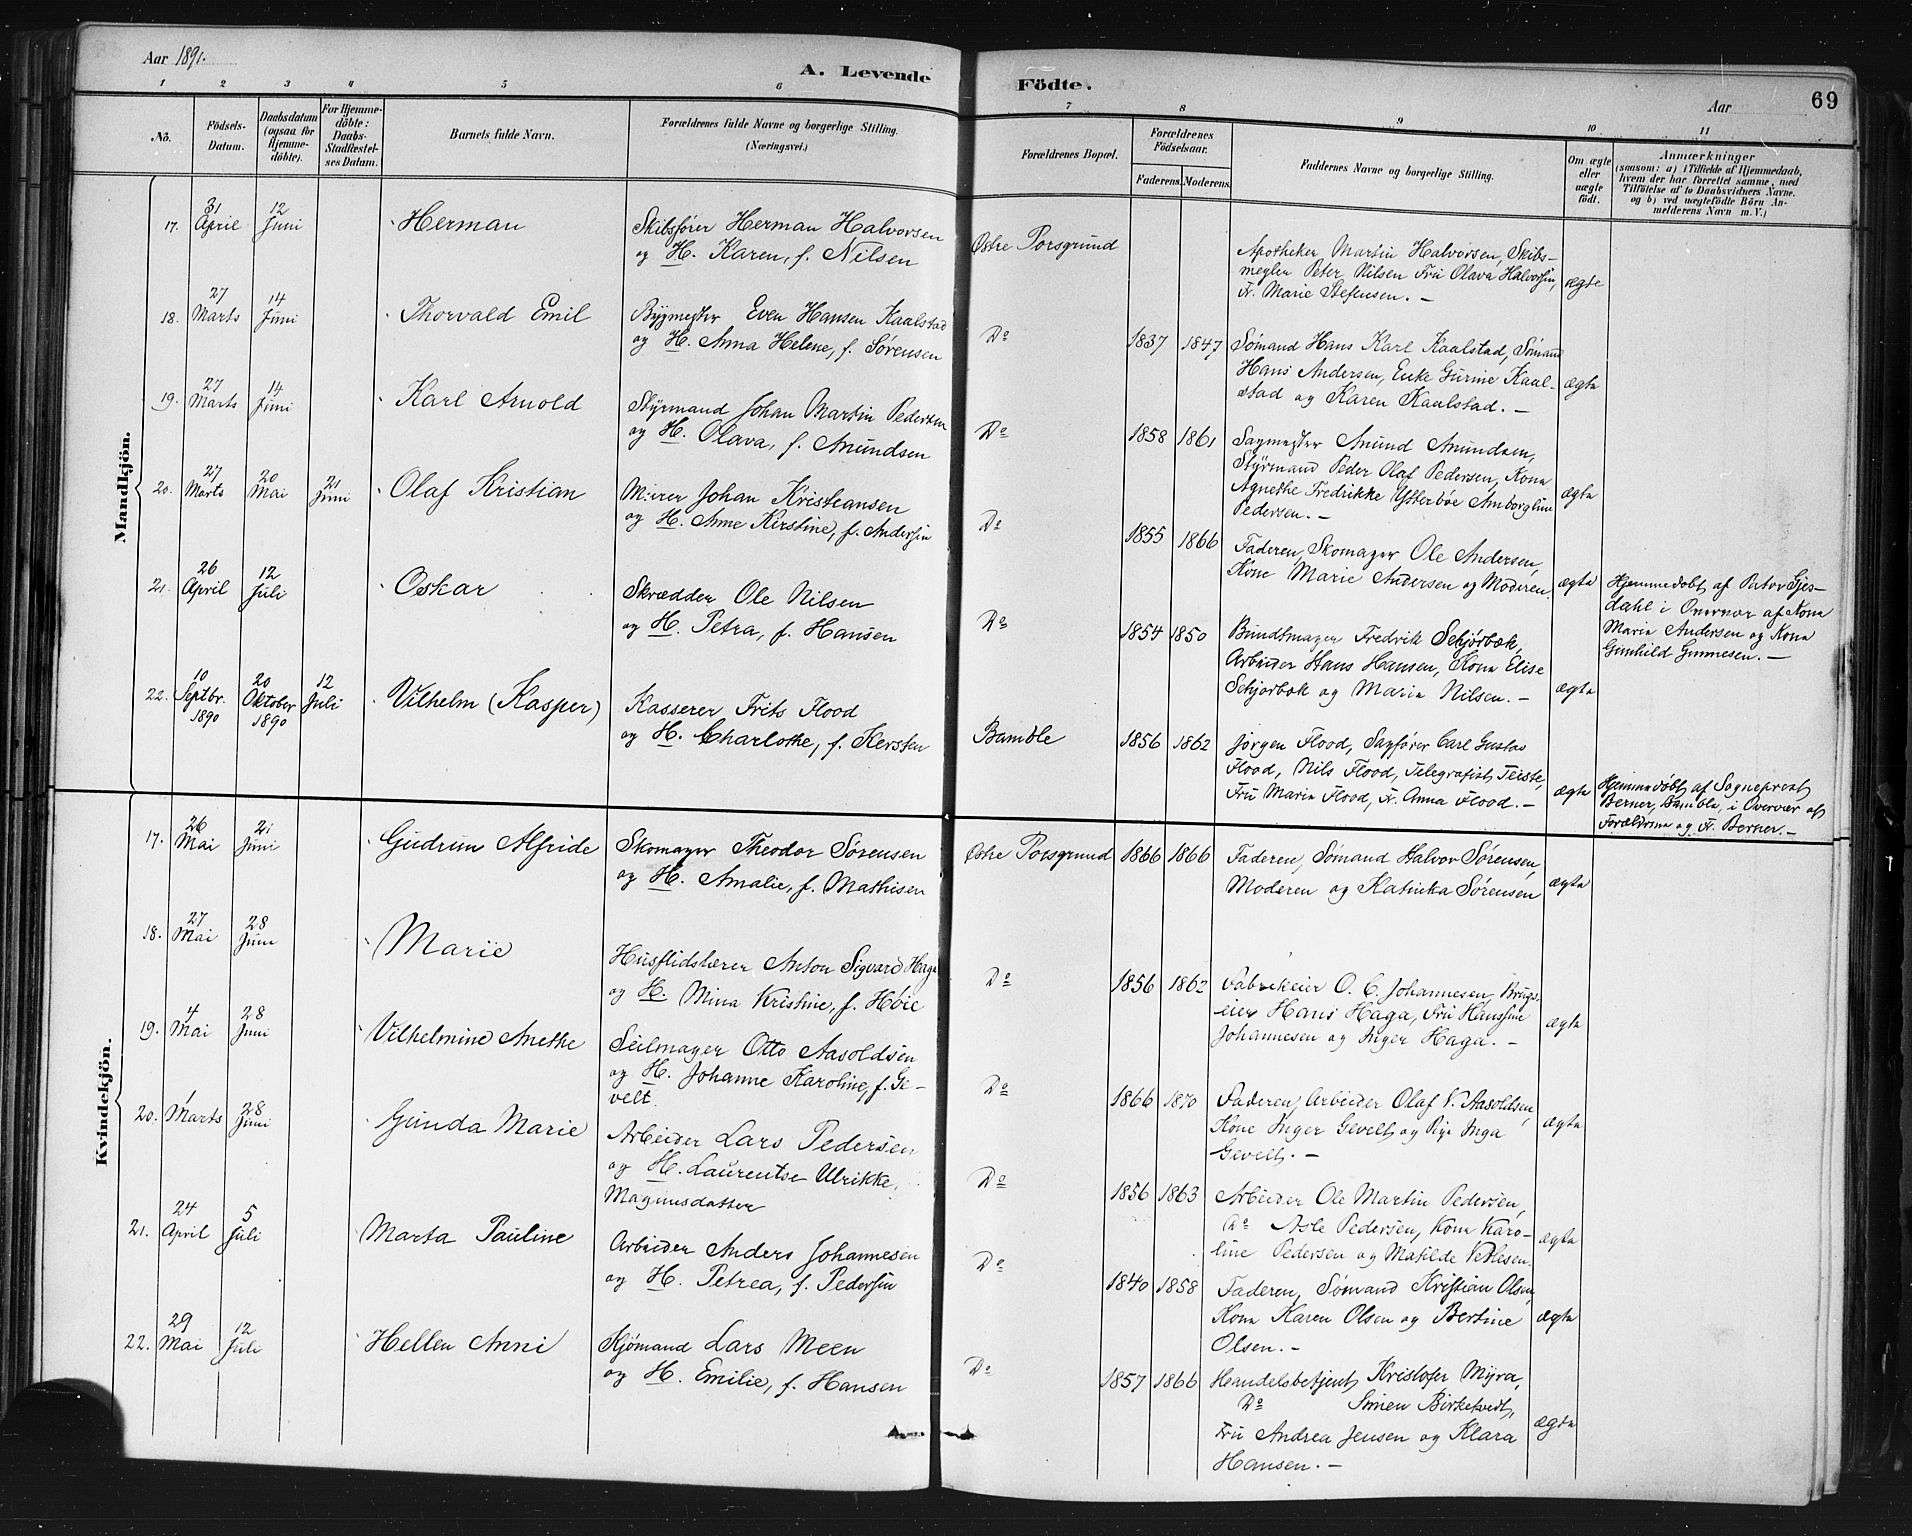 Aar 1891.
A. Levende
Födte.
Aar
69
1 2 3 4 5 6 7 8 9 10 11
No.
Födsels-
Datum.
Daabsdatum
(ogsaa for
Hjemme-
döbte).
For Hjemme-
döbte:
Daabs-
Stadfæstel-
ses Datum.
Barnets fulde Navn.
Forældrenes fulde Navne og borgerlige Stilling.
(Næringsvei.)
Forældrenes Bopæl.
Forældrenes
Födselsaar.
Faderens. Moderens.
Faddernes Navne og borgerlige Stilling.
Om ægte
eller
uægte
födt.
Anmærkninger
(saasom: a) i Tilfælde af Hjemmedaab,
hvem der har forrettet samme, med
Tilföielse af to Daabsvidners Navne.
og b) ved uægtefödte Börn An-
melderens Navn m. V.)
Mandkjön.
17. 31 April 12 Juni Herman
Skibsfører Herman Halvorsen
og H. Karen, f. Nilsen
Østre Porsgrund
Apotheker Martin Halvorsen, Skibs-
megler Peter Nilsen Fru Olava Halvorsen,
Fr. Marie Stefensen. —
ægte
18. 27 Marts 14 Juni Thorvald Emil
Bygmester Even Hansen Kaalstad
og H. Anna Helene, f. Sørensen
Do 1837 1847
Sømand Hans Karl Kaalstad, Sømand
Hans Andersen, Enke Gurine Kaal-
stad og Karen Kaalstad. —
ægte
19. 27 Marts 14 Juni Karl Arnold
Styrmand Johan Martin Pedersen
og H. Olava, f. Amundsen
Do 1858 1861
Sagmester Amund Amundsen,
Styrmand Peder Olaf Pedersen, Kona
Agnethe Fredrikke Ytterbøe Amborgline
Pedersen. —
ægte
20. 27 Marts 20 Mai 21 Juni Olaf Kristian
Murer Johan Kristiansen
og H. Anne Kirstine, f. Andersen
Do 1855 1866
Faderen, Skomager Ole Andersen,
Kone Marie Andersen og Moderen.
ægte
Hjemmedøbt af Pastor Gjes-
dahl i Overvær af Kona
Maria Andersen og Kona
Gunhild Gunnesen. —
21. 26 April 12 Juli Oskar
Skrædder Ole Nilsen
og H. Petra, f. Hansen
Do 1854 1850
Bundtmager Fredrik Schjørbæk,
Arbeider Hans Hansen, Kona Elise
Schjørbæk og Maria Nilsen. —
ægte
22. 10 Septbr. 1890 20 Oktober 1890 12 Juli Vilhelm (Kasper)
Kasserer Frits Flood
og H. Charlothe, f. Kersten
Bamble 1856 1862
Jørgen Flood, Sagfører Carl Gustav
Flood, Nils Flood, Telegrafist Teiste,
Fru Maria Flood, Fr. Anna Flood. —
ægte
Hjemmedøbt af Sogneprest
Berner, Bamble, i Overvær af
Forældrene og Fr. Berner. —
Kvindekjön.
17. 26 Mai 21 Juni Gudrun Alfride
Skomager Theodor Sørensen
og H. Amalie, f. Mathisen
Østre Porsgrund 1866 1866
Faderen, Sømand Halvor Sørensen,
Moderen og Katinka Sørensen
ægte
18. 27 Mai 28 Juni Marie
Husflidslærer Anton Sigvard Haga
og H. Mina Kristine, f. Høie
Do 1856 1862
Fabrikeier O. C. Johannesen, Brugs-
eier Hans Haga, Fru Hansine
Johannesen og Inger Haga. —
ægte
19. 4 Mai 28 Juni Vilhelmine Anethe
Seilmager Otto Aasoldsen
og H. Johanne Karoline, f. Ge-
velt.
Do 1866 1870
Faderen, Arbeider Olaf V. Aasoldsen,
Kone Inger Gevelt og Pige Inga
Gevelt. —
ægte
20. 1 Marts 28 Juni Gunda Marie
Arbeider Lars Pedersen
og H. Laurentse Ulrikke,
Magnusdatter
Do 1856 1863
Arbeider Ole Martin Pedersen,
Do Asle Pedersen, Kona Karo-
line Pedersen og Matilde Vetlesen.
ægte
21. 24 April 5 Juli Marta Pauline
Arbeider Anders Johannesen
og H. Petrea, f. Pedersen
Do 1840 1858
Faderen, Sømand Kristian Olsen,
Kona Karen Olsen og Bertine
Olsen. —
ægte
22. 29 Mai 12 Juli Hellen Anni
Sjømand Lars Meen
og H. Emilie, f. Hansen
Do 1857 1866
Handelsbetjent Kristofer Myra,
Do Simen Birketvedt,
Fru Andrea Jensen og Klara
Hansen. —
ægte